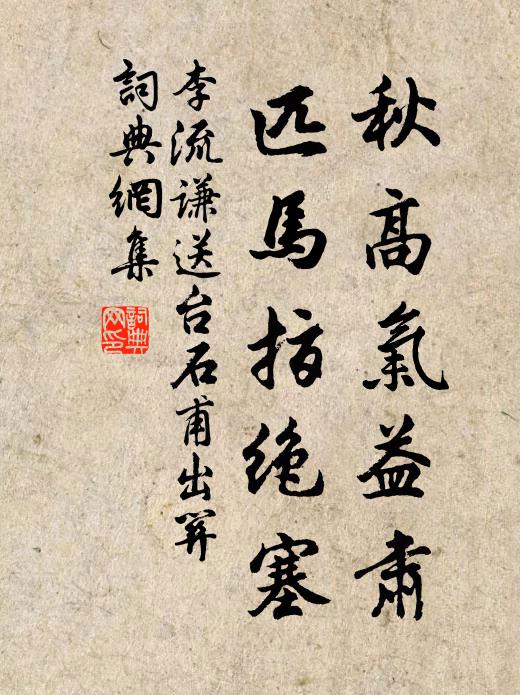 秋高氣益肅
匹馬指絶塞
李流謙送台石甫出關
詞典網集
詞典
网印